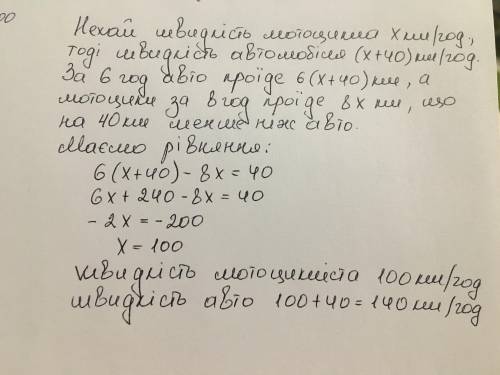 00
Нехай швидкість мотоцикла x км/год.,
тоді швидкість автомобіля (x+40) км/год.
За 6 год авто проїде 6(x+40) км, а
мотоцикл за 8 год проїде 8x км, що
на 40 км менше ніж авто.
Маємо рівняння:
6(x+40) - 8x = 40
6x + 240 - 8x = 40
- 2x = - 200
x = 100
швидкість мотоцикліста 100 км/год
швидкість авто 100+40 = 140 км/год